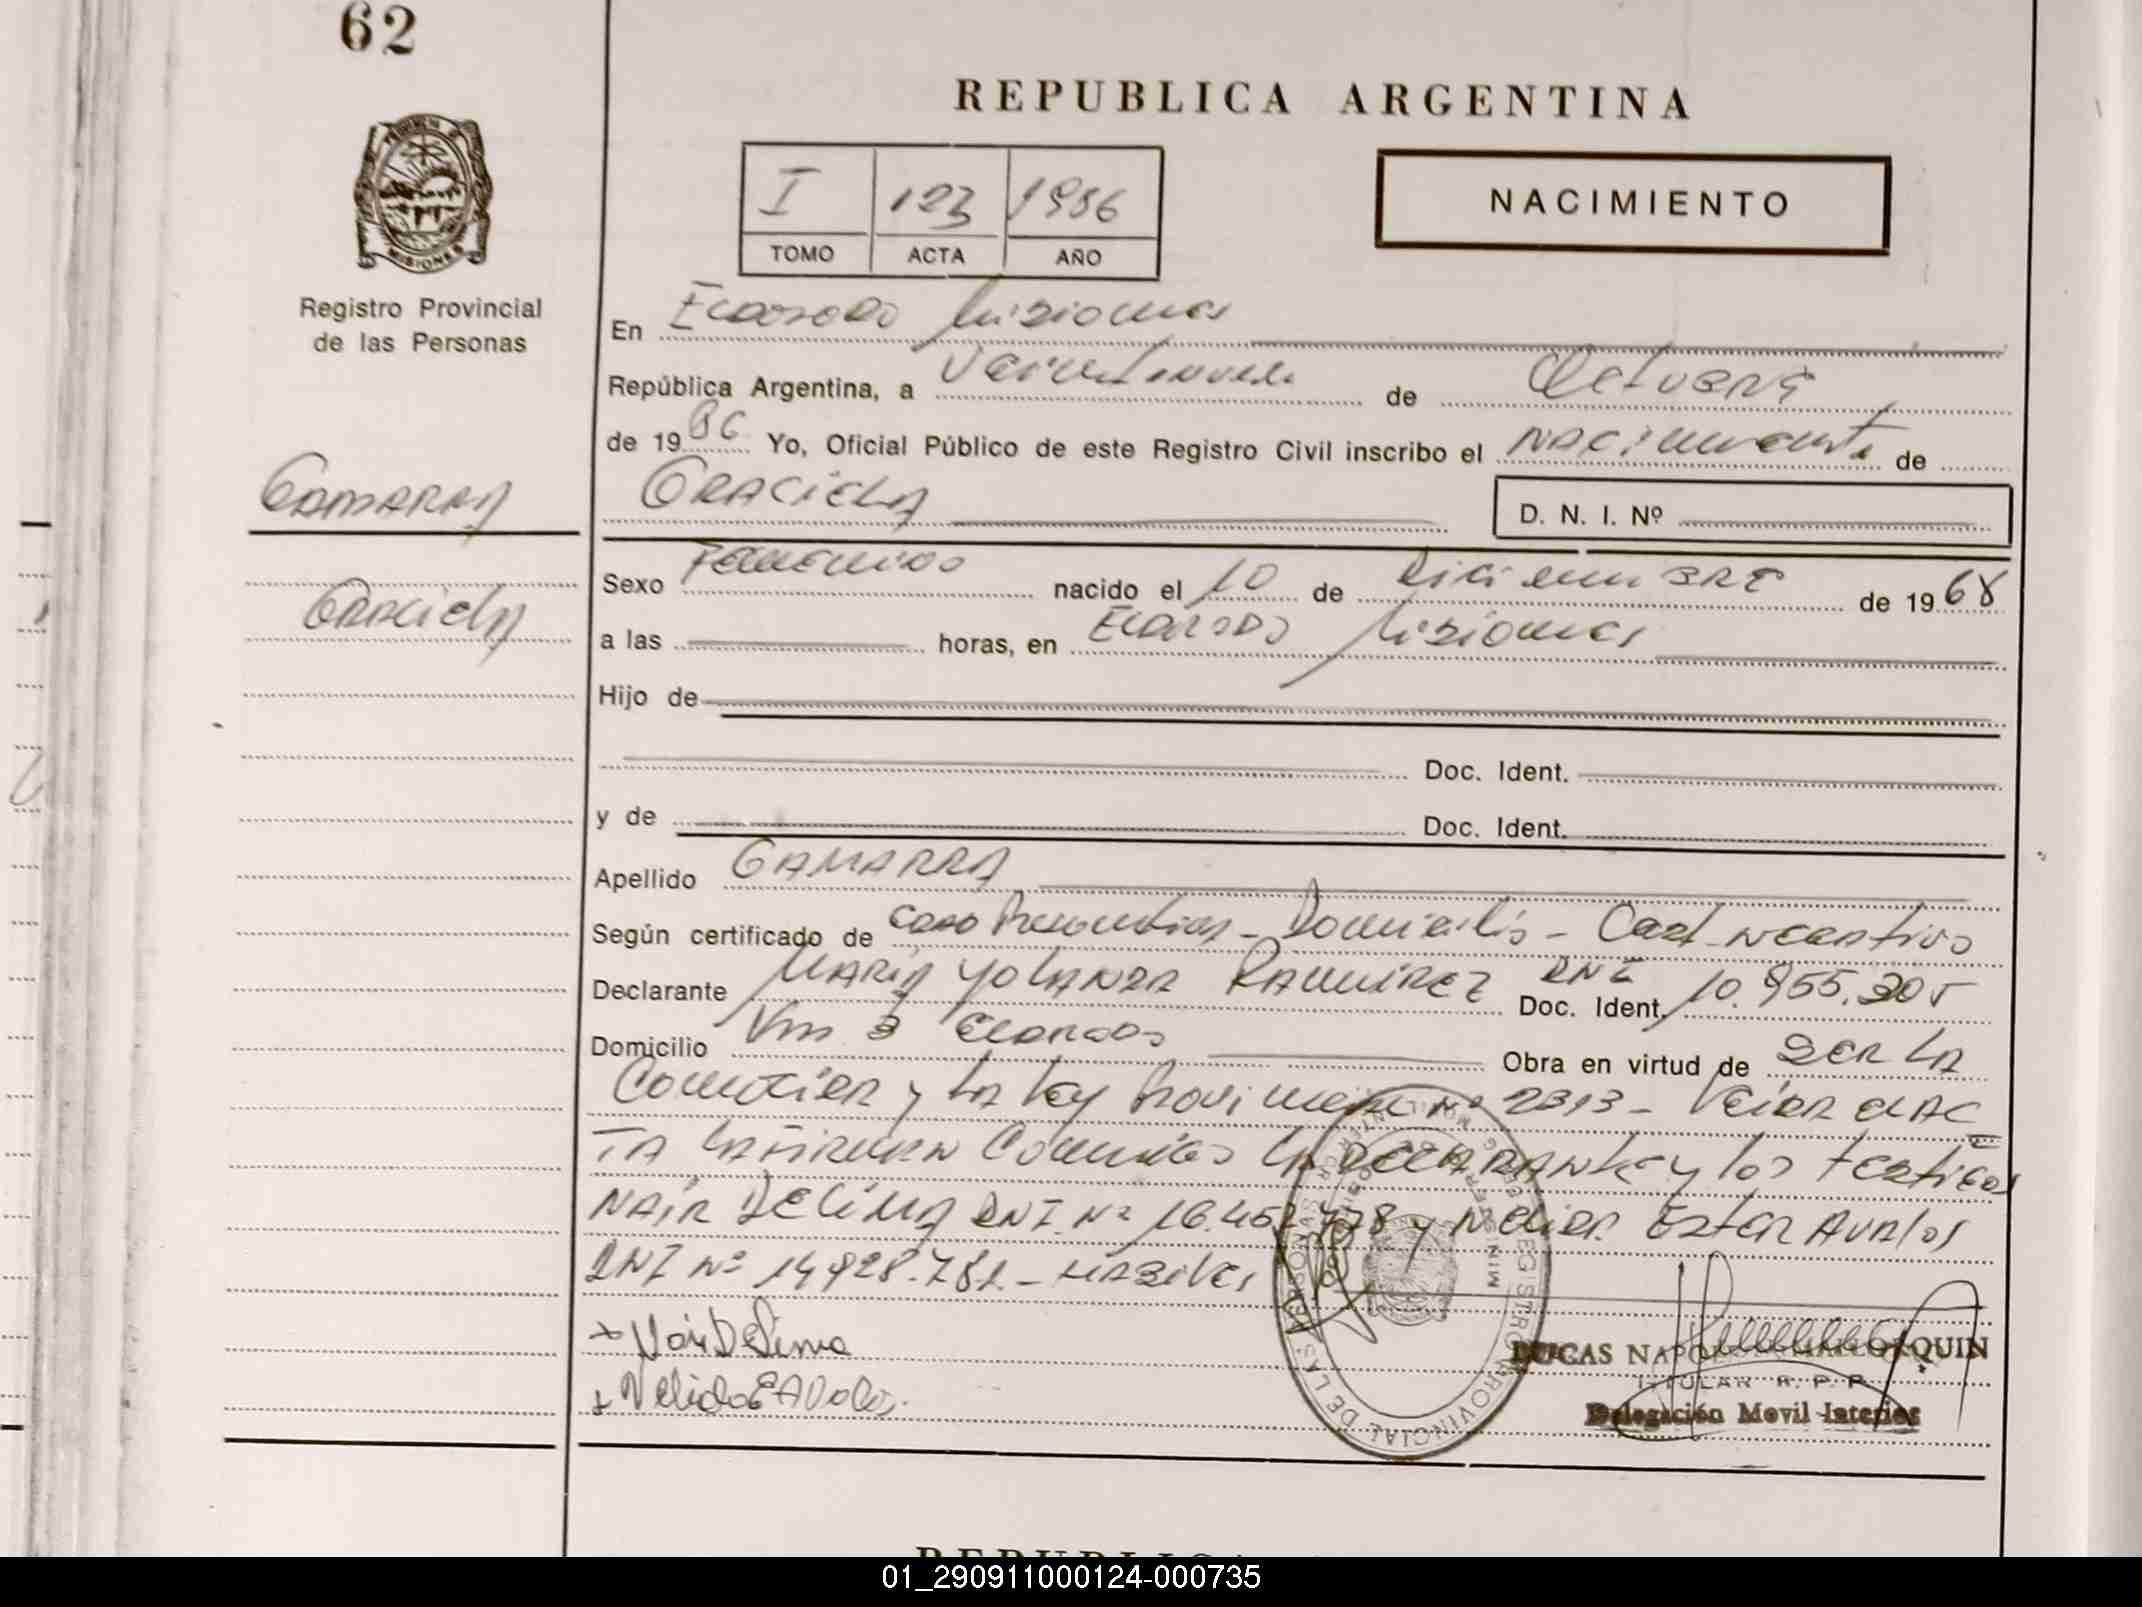 62
REPUBLICA ARGENTINA
I 123 1986
TOMO ACTA AÑO
NACIMIENTO
Registro Provincial
de las Personas
En Eldorado Misiones
República Argentina, a Veintinueve de Octubre
de 1986 Yo, Oficial Público de este Registro Civil inscribo el nacimiento de
GAMARRA
GRACIELA
D. N. I. Nº
GRACIELA
Sexo Femenino nacido el 10 de Diciembre de 1968
a las horas, en Eldorado Misiones
Hijo de
Doc. Ident.
y de Doc. Ident.
Apellido GAMARRA
Según certificado de Domicilio - Cert negativo
Declarante MARIA YOLANDA RAMIREZ DNI Doc. Ident. 10.955.305
Domicilio Km 3 Eldorado Obra en virtud de SER LA
y la Ley Provincial Nº 2313 - Leida el AC
TA LA FIRMAN LA DECLARANTE y los testigos
NAIR DE LIMA DNI Nº y Nelida Ester AVALOS
DNI Nº 14.928.781.-
+ Nair De Lima
+ Nelida E Avalos.
REGISTRO PROVINCIAL DE LAS PERSONAS
LUCAS ORQUIN
TITULAR R. P. P.
Delegación Movil Interior
01_290911000124-000735